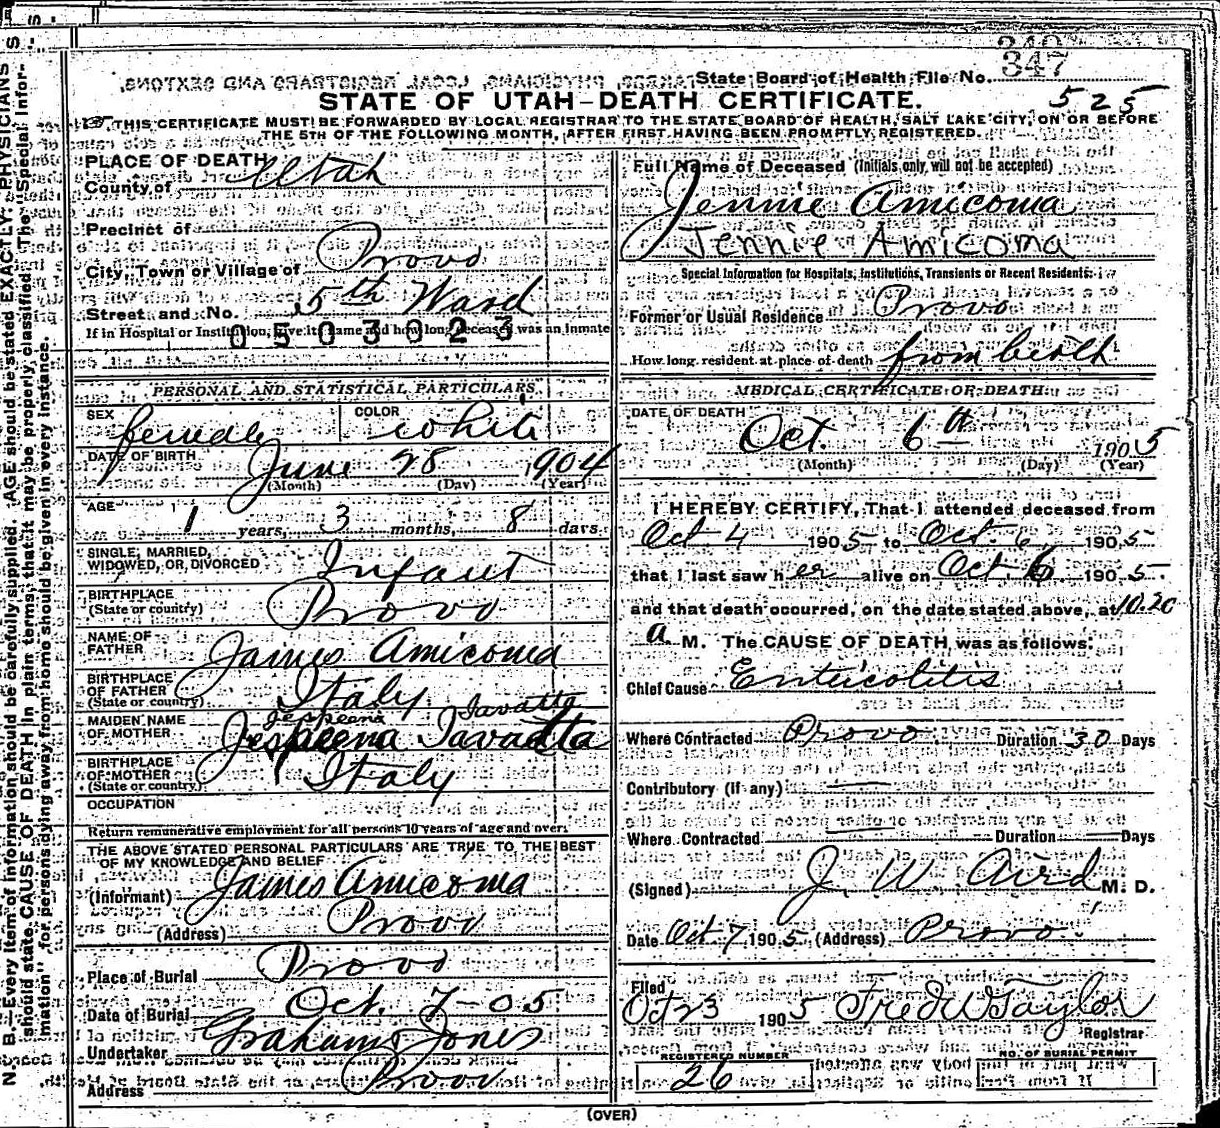 347
State Board of Health File No.
525
STATE OF UTAH—DEATH CERTIFICATE.
THIS CERTIFICATE MUST BE FORWARDED BY LOCAL REGISTRAR TO THE STATE BOARD OF HEALTH, SALT LAKE CITY, ON OR BEFORE
THE 5TH OF THE FOLLOWING MONTH, AFTER FIRST HAVING BEEN PROMPTLY REGISTERED.
PLACE OF DEATH
County of Utah
Precinct of
City, Town or Village of Provo
Street and No. 5th Ward
If in Hospital or Institution, give its name and how long deceased was an inmate
0503023
PERSONAL AND STATISTICAL PARTICULARS
SEX female COLOR white
DATE OF BIRTH June 28 1904
(Month) (Day) (Year)
AGE 1 years, 3 months, 8 days
SINGLE, MARRIED, WIDOWED, OR DIVORCED Infant
BIRTHPLACE (State or country) Provo
NAME OF FATHER James Amicoma
BIRTHPLACE OF FATHER (State or country) Italy
Jespeena Tavatta
MAIDEN NAME OF MOTHER Jespeena Tavatta
BIRTHPLACE OF MOTHER (State or country) Italy
OCCUPATION
Return remunerative employment for all persons 10 years of age and over.
THE ABOVE STATED PERSONAL PARTICULARS ARE TRUE TO THE BEST
OF MY KNOWLEDGE AND BELIEF
(Informant) James Amicoma
(Address) Provo
Place of Burial Provo
Date of Burial Oct. 7-05
Undertaker Graham Jones
Address Provo
Full Name of Deceased (Initials only will not be accepted)
Jennie Amicoma
Jennie Amicoma
Special Information for Hospitals, Institutions, Transients or Recent Residents:
Former or Usual Residence Provo
How long resident at place of death from birth
MEDICAL CERTIFICATE OF DEATH
DATE OF DEATH
Oct. 6th 1905
(Month) (Day) (Year)
I HEREBY CERTIFY, That I attended deceased from
Oct 4 1905 to Oct. 6 1905
that I last saw her alive on Oct 6 1905.
and that death occurred, on the date stated above, at 10.20
a M. The CAUSE OF DEATH was as follows:
Chief Cause Entericolitis
Where Contracted Provo Duration 30 Days
Contributory (if any)
Where Contracted Duration Days
(Signed) J. W. Aird M. D.
Date Oct 7 1905 (Address) Provo.
Filed
Oct 23 1905 Fred W Taylor
Registrar
REGISTERED NUMBER
26
NO. OF BURIAL PERMIT
(OVER)
N. B.—Every item of information should be carefully supplied. AGE should be stated EXACTLY. PHYSICIANS
should state CAUSE OF DEATH in plain terms, that it may be properly classified. The "Special Infor-
mation" for persons dying away from home should be given in every instance.